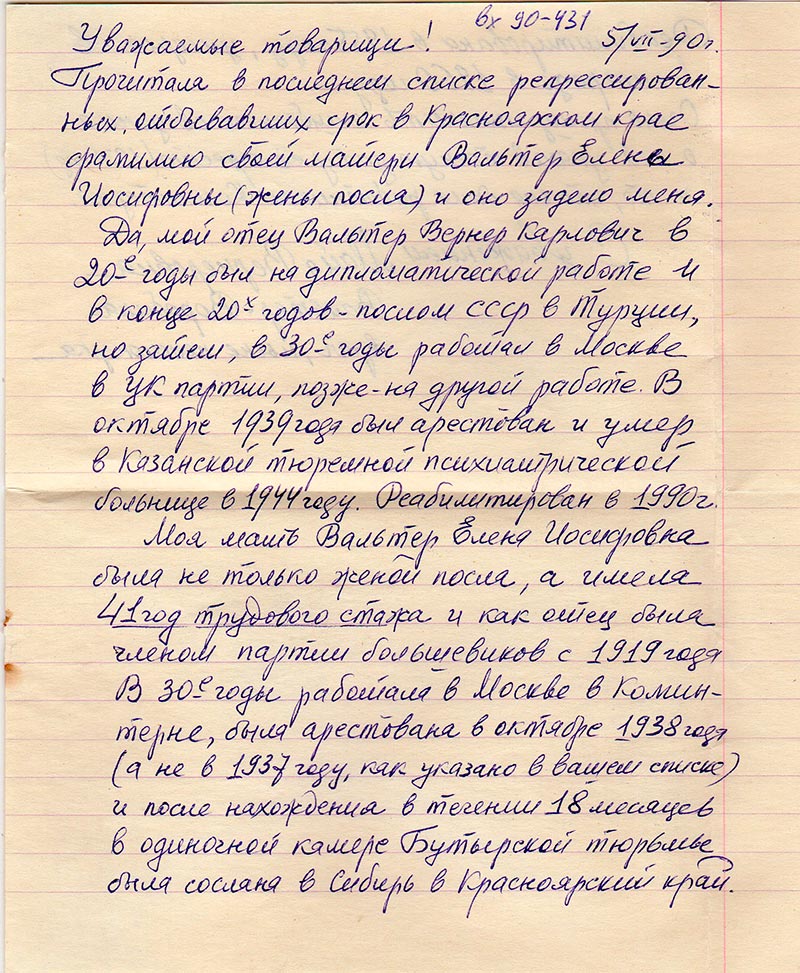 вх 90-431
Уважаемые товарищи! 5/VII-90г.
Прочитала в последнем списке репрессирован-
ных, отбывавших срок в Красноярском крае
фамилию своей матери Вальтер Елены
Иосифовны (жены посла) и оно задело меня.
Да, мой отец Вальтер Вернер Карлович в
20-е годы был на дипломатической работе и
в конце 20х годов - послом СССР в Турции,
но затем, в 30-е годы работал в Москве
в ЦК партии, позже - на другой работе. В
октябре 1939 года был арестован и умер
в Казанской тюремной психиатрической
больнице в 1944 году. Реабилитирован в 1990 г.
Моя мать Вальтер Елена Иосифовна
была не только женой посла, а имела
41 год трудового стажа и как отец была
членом партии большевиков с 1919 года
В 30-е годы работала в Москве в Комин-
терне, была арестована в октябре 1938 года
(а не в 1937 году, как указано в вашем списке)
и после нахождения в течении 18 месяцев
в одиночной камере Бутырской тюрьмы
была сослана в Сибирь в Красноярский край.